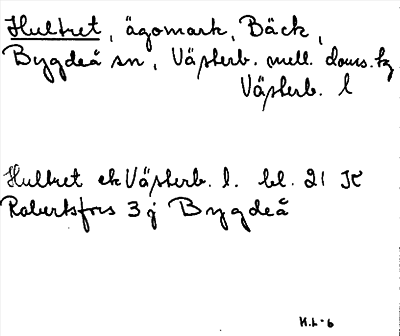 Hultret, ägomark, Bäck,
Bygdeå sn, Västerb. mell. doms. tg
Västerb. l
Hultret ek Västerb. l. bl. 21 K
Robertsfors 3 j Bygdeå
H.L-6